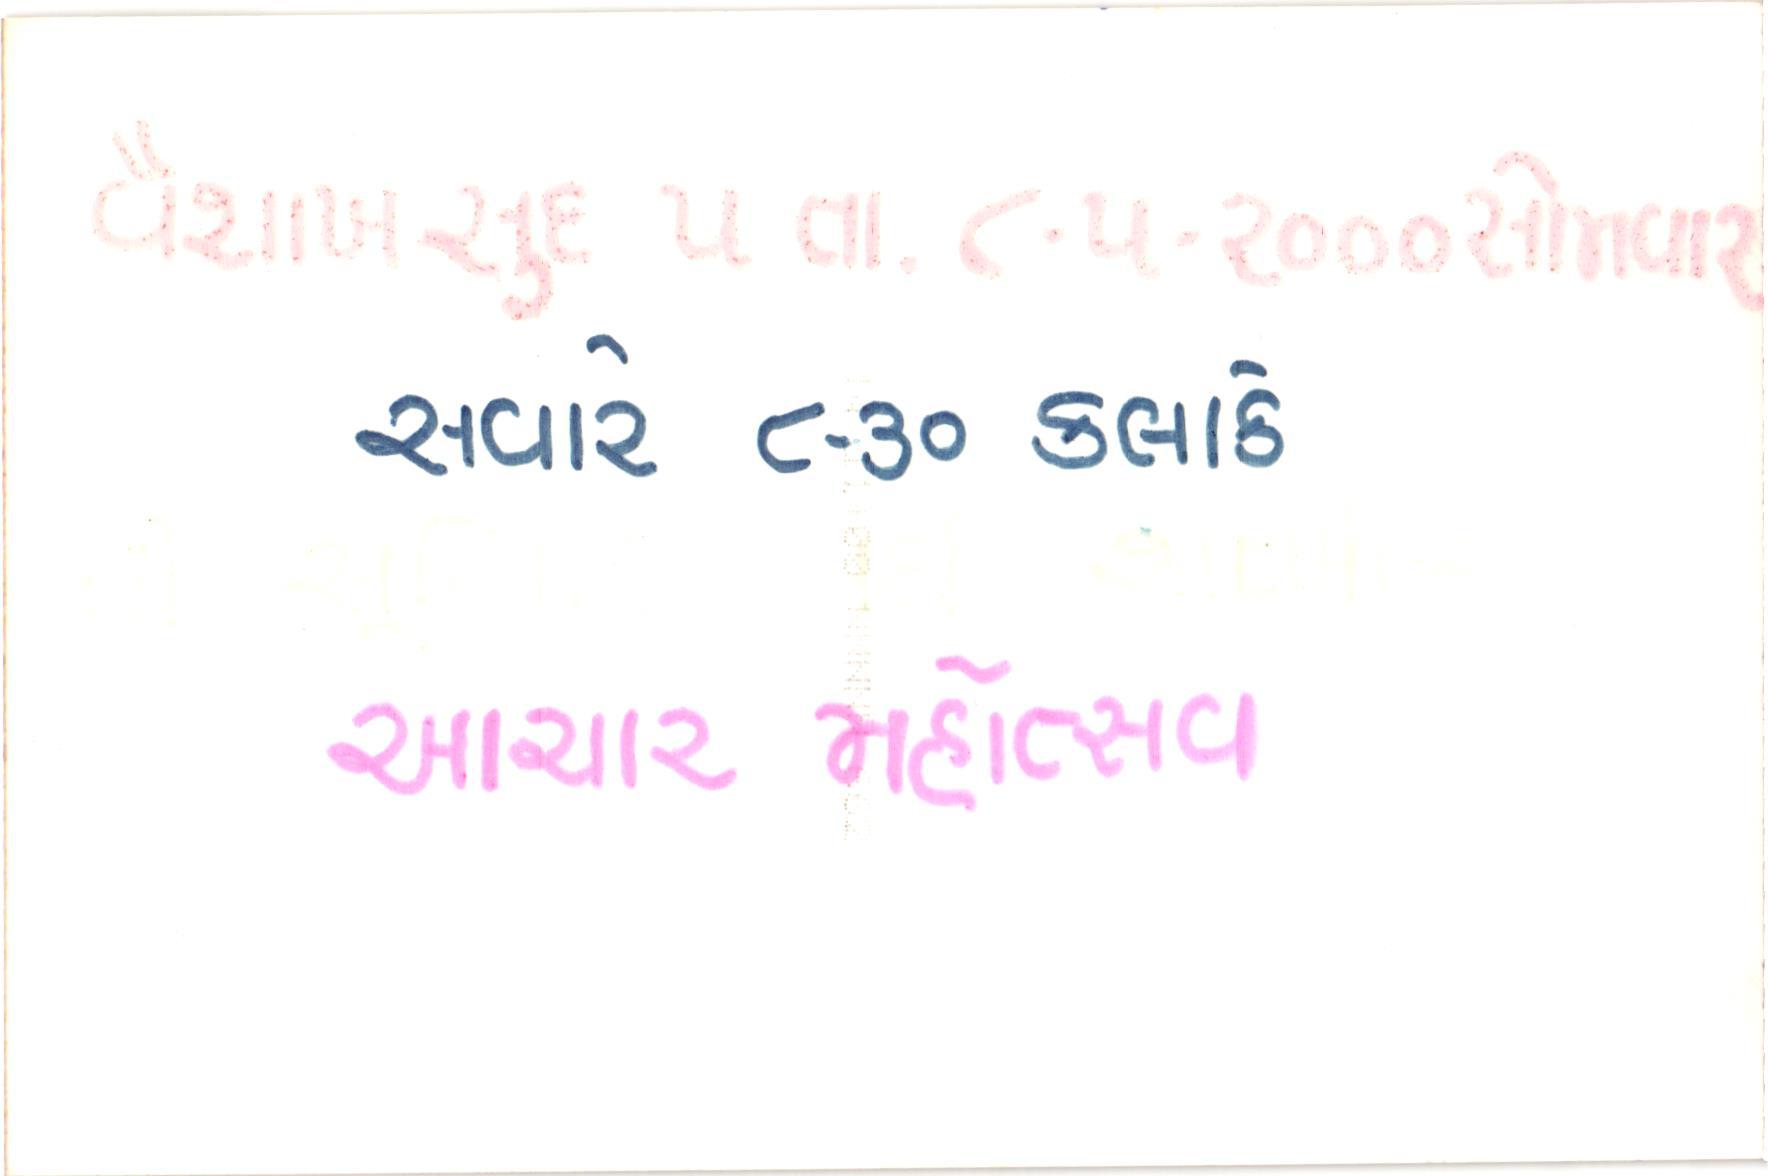 વૈશાખ સુદ ૫ તા. ૮-૫-૨૦૦૦ સોમવાર
સવારે ૮-૩૦ કલાકે
આચાર મહોત્સવ